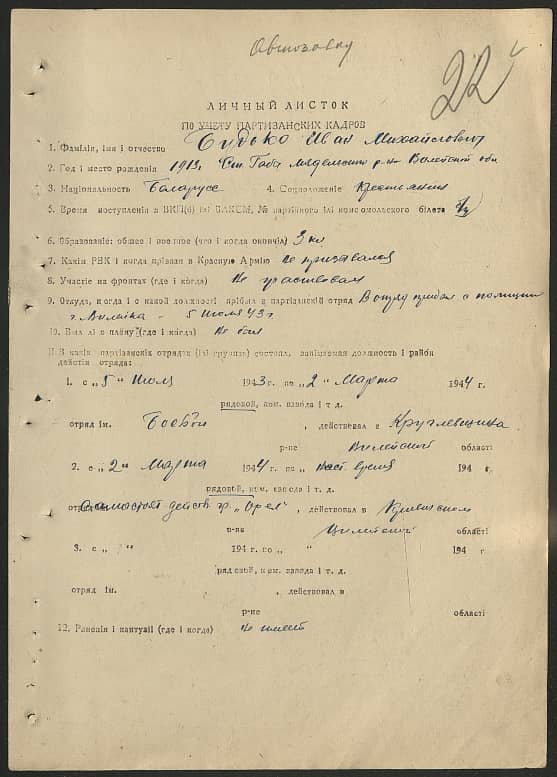 22
ЛИЧНЫЙ ЛИСТОК
ПО УЧЕТУ ПАРТИЗАНСКИХ КАДРОВ
1. Фамілія, імя і отчество Будько Иван Михайлович
2. Год і место рождения 1913г. Мядельский р-н Вилейской обл
3. Національность Беларусс 4. Соцположеніе Крестьянин
5. Время поступленія в ВКП(б) ілі ВЛКСМ, № партійного ілі комсомольского білета б/п
6. Образованіе: общее і военное (что і когда окончіл) 3 кл
7. Какім РВК і когда прізван в Красную Армію Не призывался
8. Участіе на фронтах (где і когда) Не участвовал
9. Откуда, когда і с какой должності прібыл в партізанскій отряд В отряд прибыл с полиции
г. Вилейка - 5 Июля 43 г.
10. Был лі в плену (где і когда) Не был
11. В какіх партізанскіх отрядах (ілі группах) состоял, занімаемая должность і район
действ. отряда:
1. с „5" Июля 1943 г. по „2" Марта 1944 г.
рядовой, ком. взвода і т. д.
отряд ім. Боевой , действовал в
р-не Вилейской області
2. с „2" Марта 1944 г. по „ наст. время 194 г.
рядовой, ком. взвода і т. д.
отряд ім. действ. гр. „Орел" , действовал в
р-не Вилейской області
3. с „ " 194 г. по „ " 194 г.
рядовой, ком. взвода і т. д.
отряд ім. , действовал в
р-не області
12. Раненія і кантузіі (где і когда) Не имеет